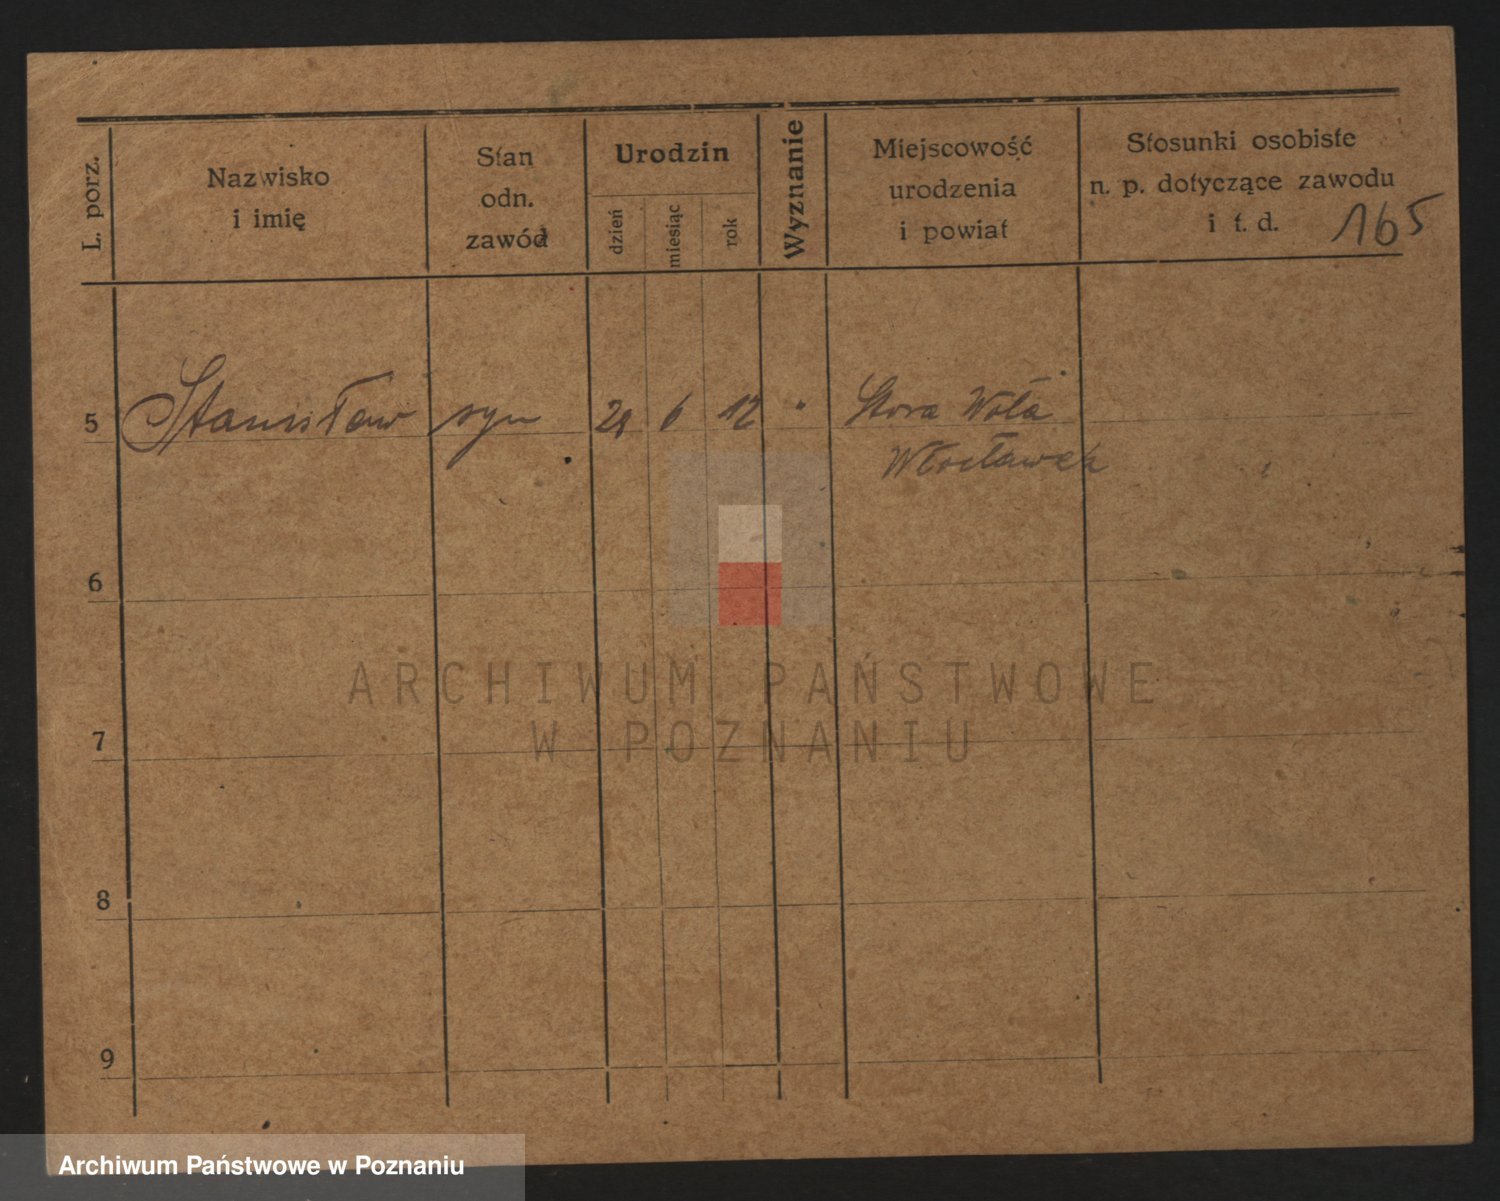 L. porz.
Nazwisko
i imię
Stan
odn.
zawód
Urodzin
dzień
miesiąc
rok
Wyznanie
Miejscowość
urodzenia
i powiat
Stosunki osobiste
n. p. dotyczące zawodu
i t. d.
165
5 Stanisław syn 28 6 12 " Stara Wola
Włocławek
6
7
8
9
ARCHIWUM PAŃSTWOWE
W POZNANIU
Archiwum Państwowe w Poznaniu